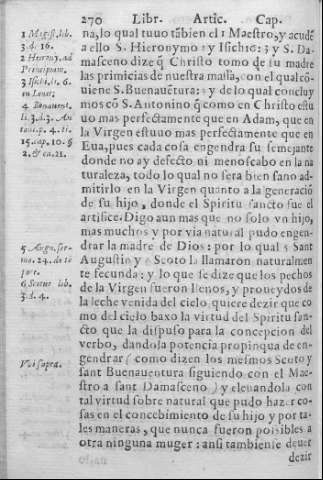 270 Libr. Artic. Cap.
1 Magist. lib.
3. d. 16.
2 Hierony. ad
Principiam.
3 Isichi. li. 6
in Leuit.
4 Bonauent.
li. 3. d. 3. An
toni. p. 4. ti.
15. cap. 10. §
2. & ca. 21.
5 Augu. ser-
mo. 24. de tē
pore.
6 Scotus lib.
3. d. 4.
Vbi supra.
na, lo qual tuuo tābien el 1 Maestro, y acudē
a ello S. Hieronymo 2 y Isichio: 3 y S. Da-
masceno dize q̄ Christo tomo de su madre
las primicias de nuestra massa, con el qual cō-
uiene S. Buenauētura: 4 y de lo qual concluy
mos cō S. Antonino q̄ como en Christo estu
uo mas perfectamente que en Adam, que en
la Virgen estuuo mas perfectamente que en
Eua, pues cada cosa engendra su semejante
donde no ay defecto ni menoscabo en la na
turaleza, todo lo qual no sera bien sano ad-
mitirlo en la Virgen quanto a la generaciō
de su hijo, donde el Spiritu sancto fue el
artifice. Digo aun mas que no solo vn hijo,
mas muchos y por via natural pudo engen-
drar la madre de Dios: por lo qual 5 Sant
Augustin y 6 Scoto la llamaron naturalmen
te fecunda: y lo que se dize que los pechos
de la Virgen fueron llenos, y proueydos de
la leche venida del cielo, quiere dezir que co
mo del cielo baxo la virtud del Spiritu san-
cto que la dispuso para la concepcion del
verbo, dandola potencia propinqua de en-
gendrar (como dizen los mesmos Scoto y
sant Buenauentura siguiendo con el Mae-
stro a sant Damasceno) y eleuandola con
tal virtud sobre natural que pudo hazer co-
sas en el concebimiento de su hijo y por ta-
les maneras, que nunca fueron possibles a
otra ninguna muger: ansi tambien se deuer
dezir